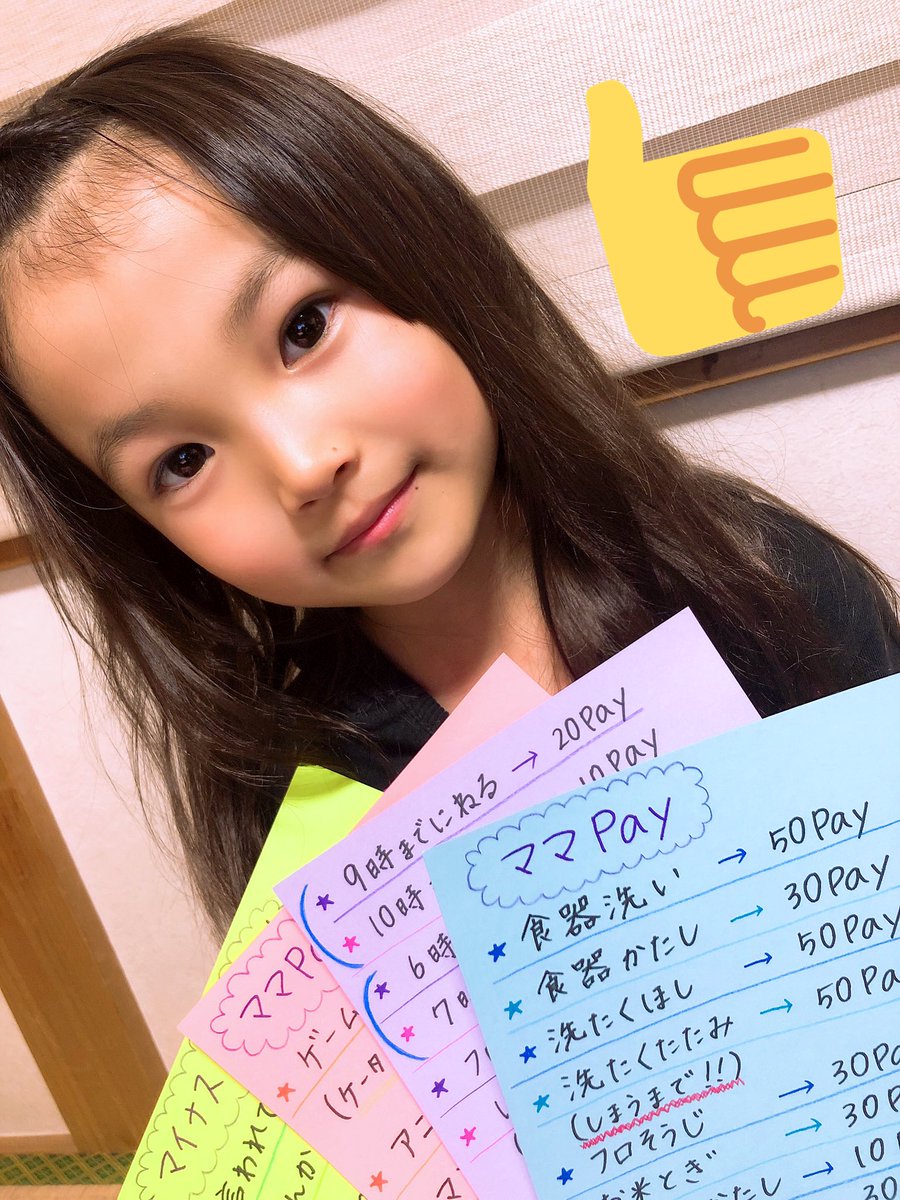 ママPay
★食器洗い → 50Pay
★食器かたし → 30Pay
★洗たくほし → 50Pay
★洗たくたたみ → 50Pay
(しまうまで!!)
★フロそうじ → 30Pay
お米とぎ → 30P
かたし → 10
30
★9時までにねる → 20Pay
★10時 10Pay
★6時
★7時
ママPa
★ゲーム
(ケータ
★アニ
マイナス
言われて